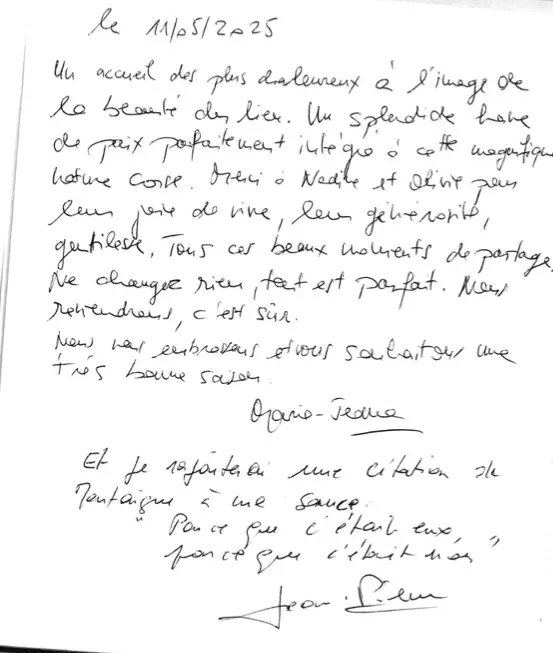 le 11/05/2025
Un accueil des plus chaleureux à l'image de
la beauté du lieu. Un splendide havre
de paix parfaitement intégré à cette magnifique
nature corse. Merci à Nadine et Olivier pour
leur joie de vivre, leur générosité,
gentillesse, Tous ces beaux moments de partage.
Ne changez rien, tout est parfait. Nous
reviendrons, c'est sûr.
Nous vous embrassons et vous souhaitons une
très bonne saison
Marie-Jeanne
Et je rajouterai une citation de
Montaigne à ma sauce
" Parce que c'était eux,
parce que c'était nous "
Jean-Pierre